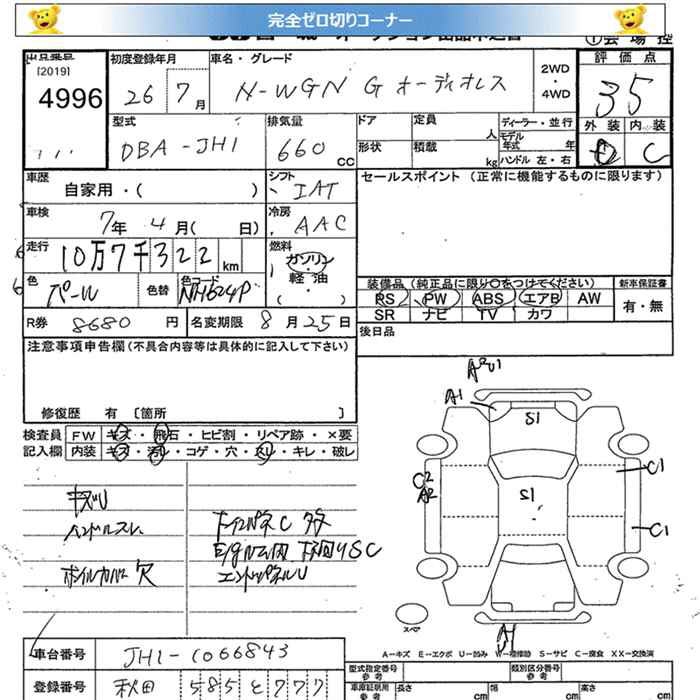 完全ゼロ切りコーナー
出品番号 初度登録年月 車名・グレード 2WD・4WD 評価点
[2019]
4996
26 7月 N-WGN G オーディオレス 35
型式 排気量 ドア 定員 人 ディーラー・並行 外装 内装
DBA-JH1 660 CC 形状 積載 kg モデル年式 年 ハンドル 左・右 D C
車歴 自家用・( ) シフト IAT セールスポイント (正常に機能するものに限ります)
車検 7年 4月( 日) 冷房 AAC
走行 10万7千322 km 燃料 ガソリン・軽油 ( )
色 パール 色替 色コード NH624P
装備品 (純正品に限り○をつけてください) 新車保証書
PS PW ABS エアB AW 有・無
SR ナビ TV カワ
R券 8680 円 名変期限 8月25日 後日品
注意事項申告欄(不具合内容等は具体的に記入して下さい)
修復歴 有 〔箇所 〕
検査員 FW キズ・飛石・ヒビ割・リペア跡・×要
記入欄 内装 キズ・汚レ・コゲ・穴・スレ・キレ・破レ
キズU
ハンドルスレ
ホイルカバー欠
下回りSC
エンドパネルU
A2U1
A1
S1
C2
A2
S1
C1
C1
A1
スペア
A-キズ E-エクボ U-凹み W-補修跡 S-サビ C-腐食 XX-交換済
車台番号 JH1-1066843
型式指定番号 参考 類別区分番号 参考
登録番号 秋田 585 と 777
車庫証明用 参考 長さ cm 幅 cm 高さ cm